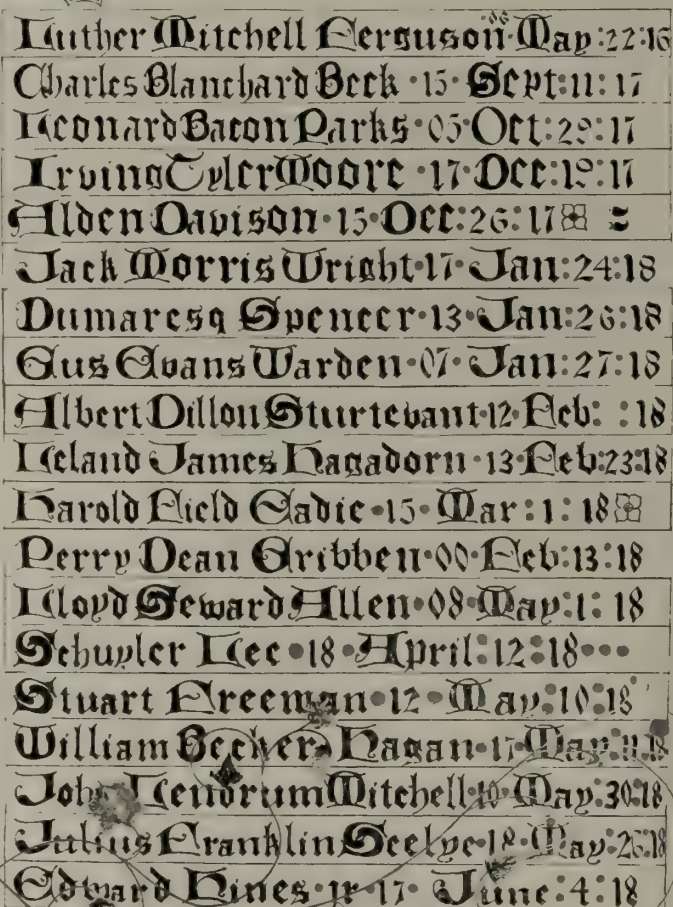 Luther Mitchell Ferguson 06 May:22:16
Charles Blanchard Beck ·15· Sept:11:17
Leonard Bacon Parks ·05· Oct:29:17
Irving Tyler Moore ·17· Dec:19:17
Alden Davison ·15· Dec:26:17
Jack Morris Wright ·17· Jan:24:18
Dumaresq Spencer ·13· Jan:26:18
Gus Evans Warden ·07· Jan:27:18
Albert Dillon Sturtevant ·12· Feb: :18
Leland James Hagadorn ·13· Feb:23:18
Harold Field Eadie ·15· Mar:1:18
Perry Dean Gribben ·00· Feb:13:18
Lloyd Seward Allen ·08· May:1:18
Schuyler Lee ·18· April:12:18···
Stuart Freeman ·12· May:10:18
William Becker Hagan ·17· May:11:18
John Kendrum Mitchell ·10· May:30:18
Julius Franklin Seelye ·18· May:26:18
Edward Hines ·jr·17· June:4:18